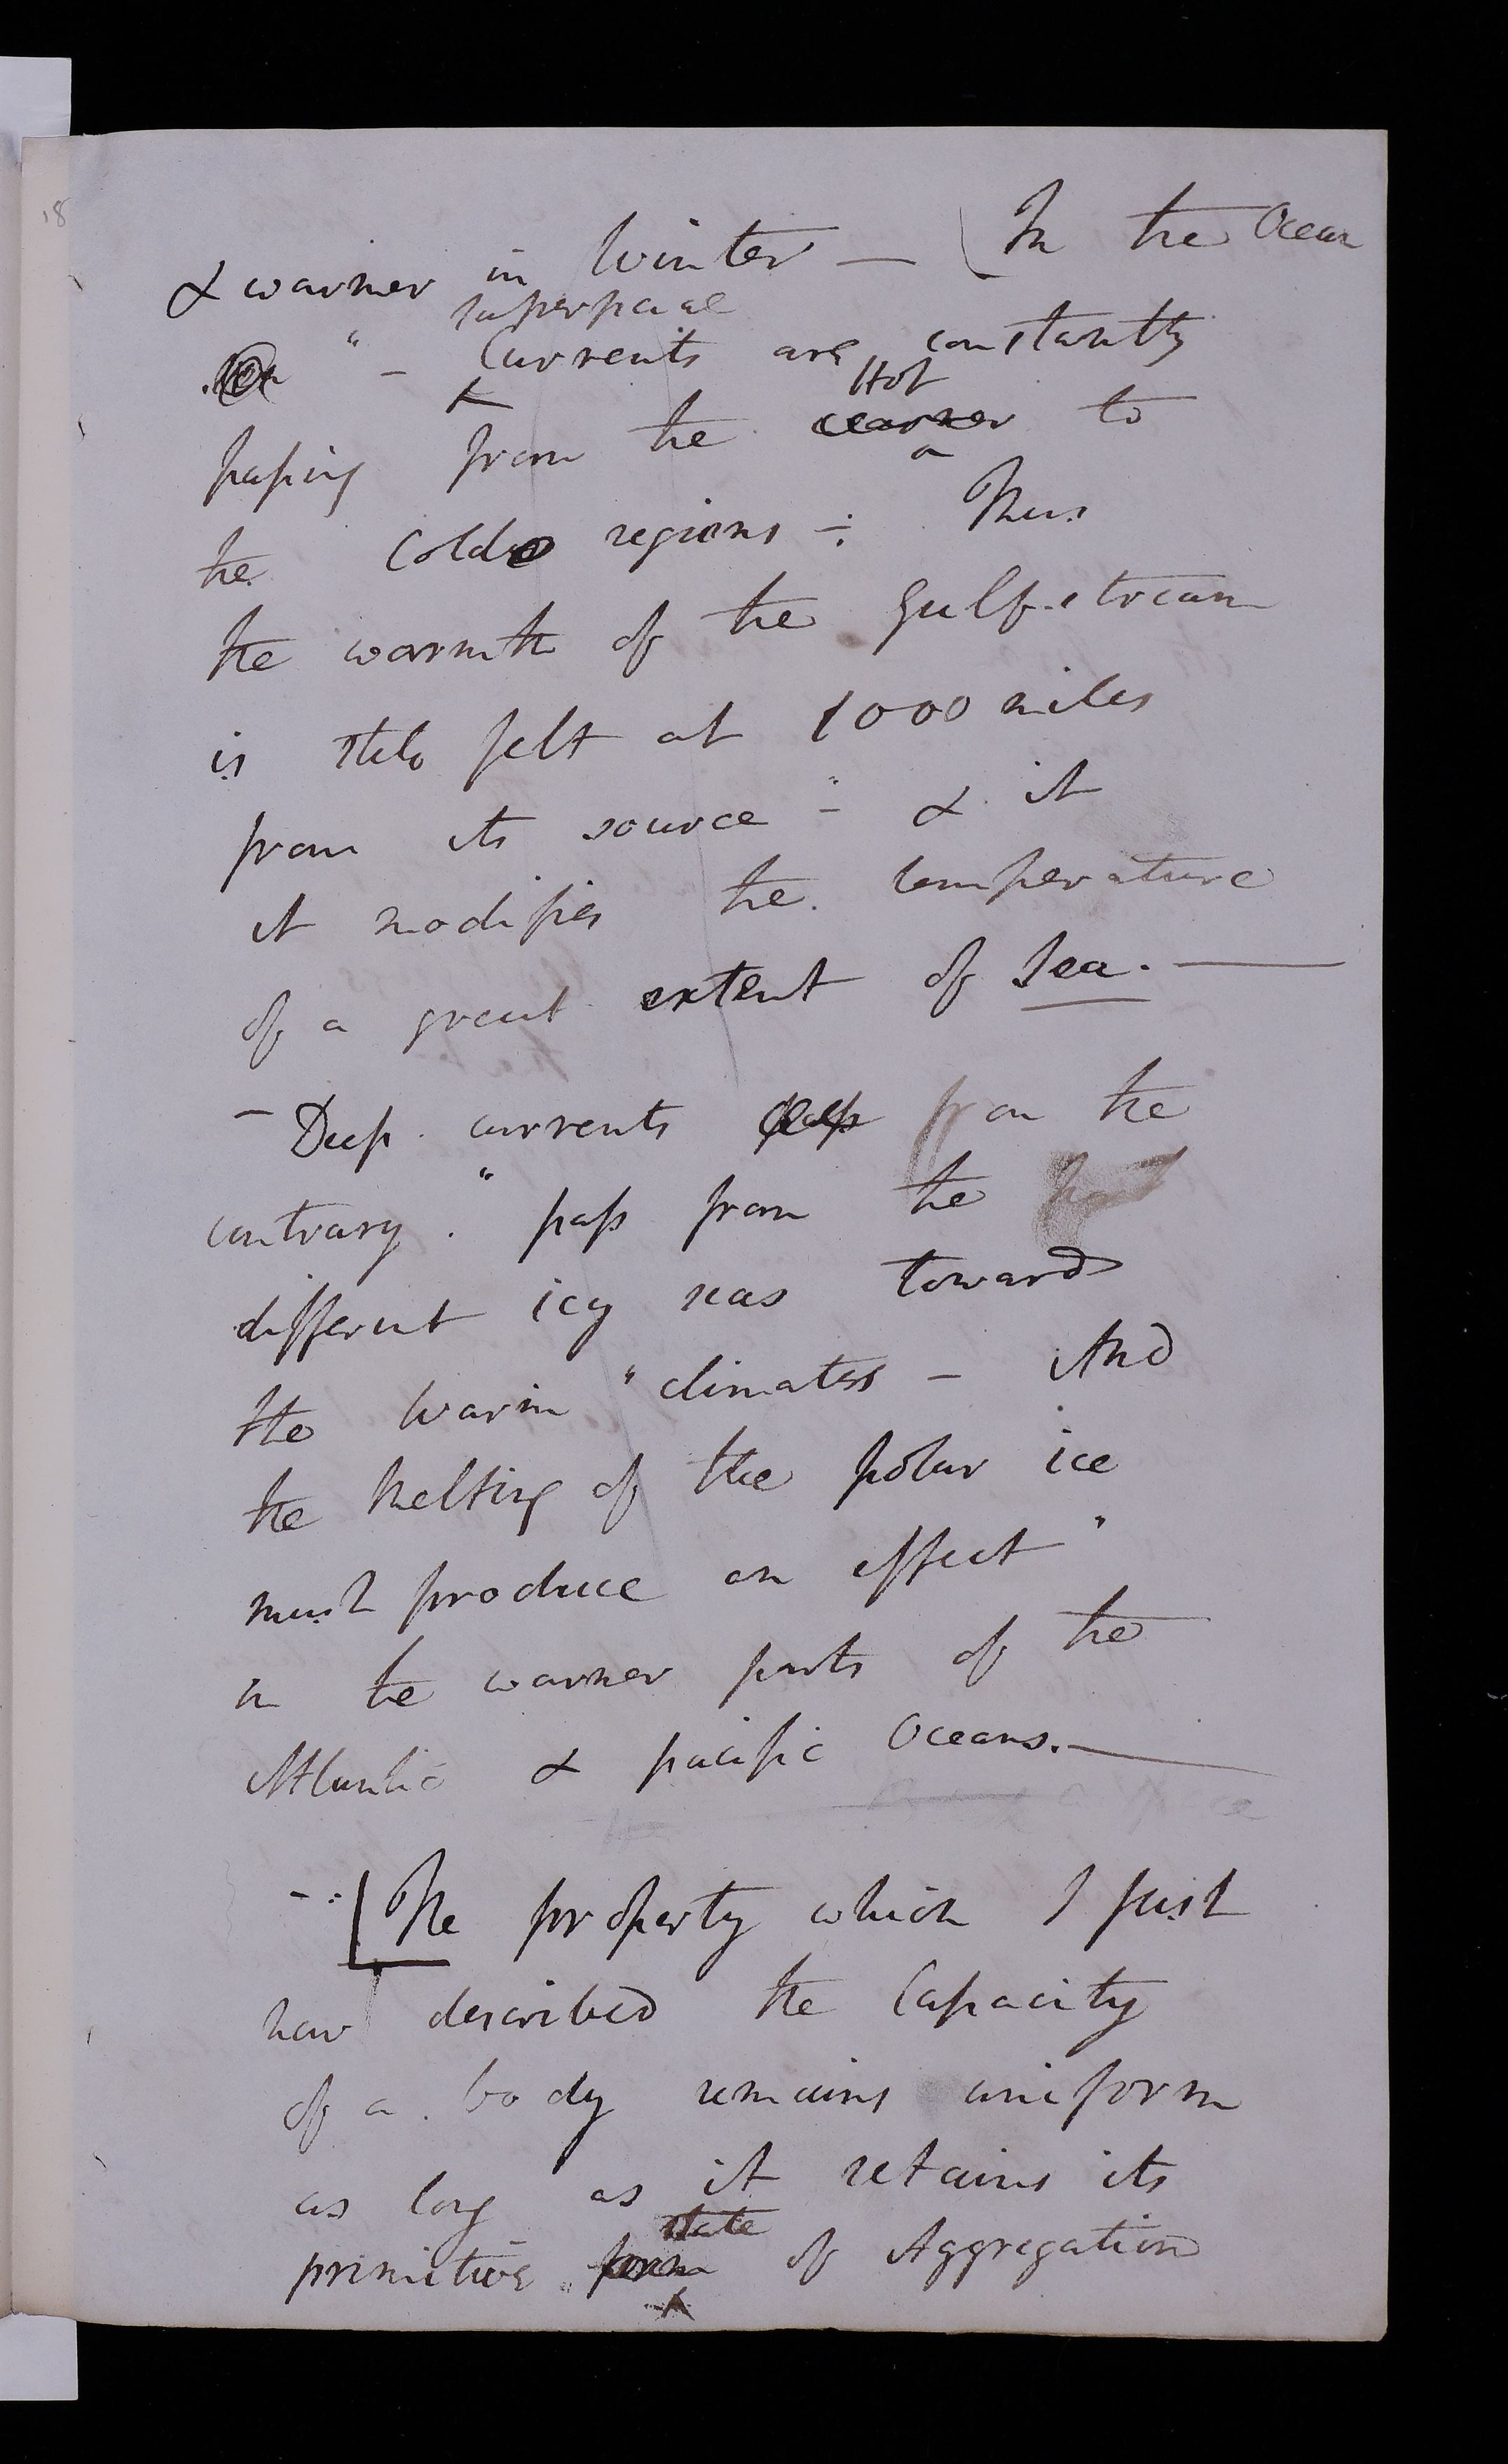 18
& warmer in Winter — In the Ocean
superficial
" – Currents are constantly
Hot
passing from the warmer to
the Cold regions ÷ Thus
the warmth of the Gulf-stream
is still felt at 1000 miles
from its source – & it
it modifies the temperature
of a great extent of Sea. —
– Deep currents from the
contrary. " pass from the
different icy seas toward
the warm " climates – And
the Melting of the polar ice
must produce an effect "
in the warmer parts of the
Atlantic & pacific Oceans. —
The property which I just
now described the Capacity
of a body remains uniform
as long as it retains its
state
primitive form of Aggregation